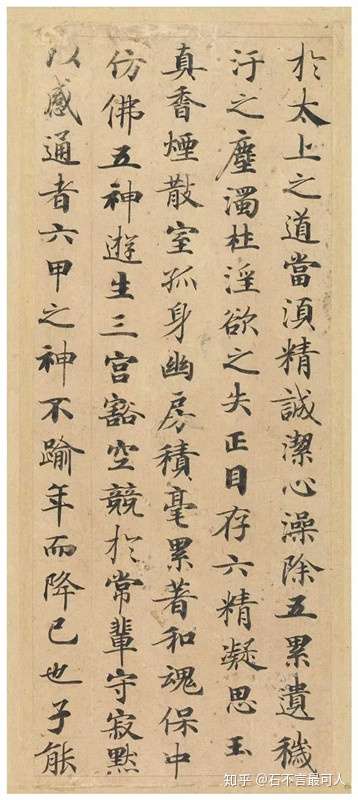 於太上之道當湏精誠潔心澡除五累遺穢
汙之塵濁杜淫欲之失正目存六精凝思玉
真香煙散室孤身幽房積毫累著和魂保中
仿佛五神遊生三宮豁空競於常輩守寂默
以感通者六甲之神不踰年而降已也子能
知乎 @石不言最可人